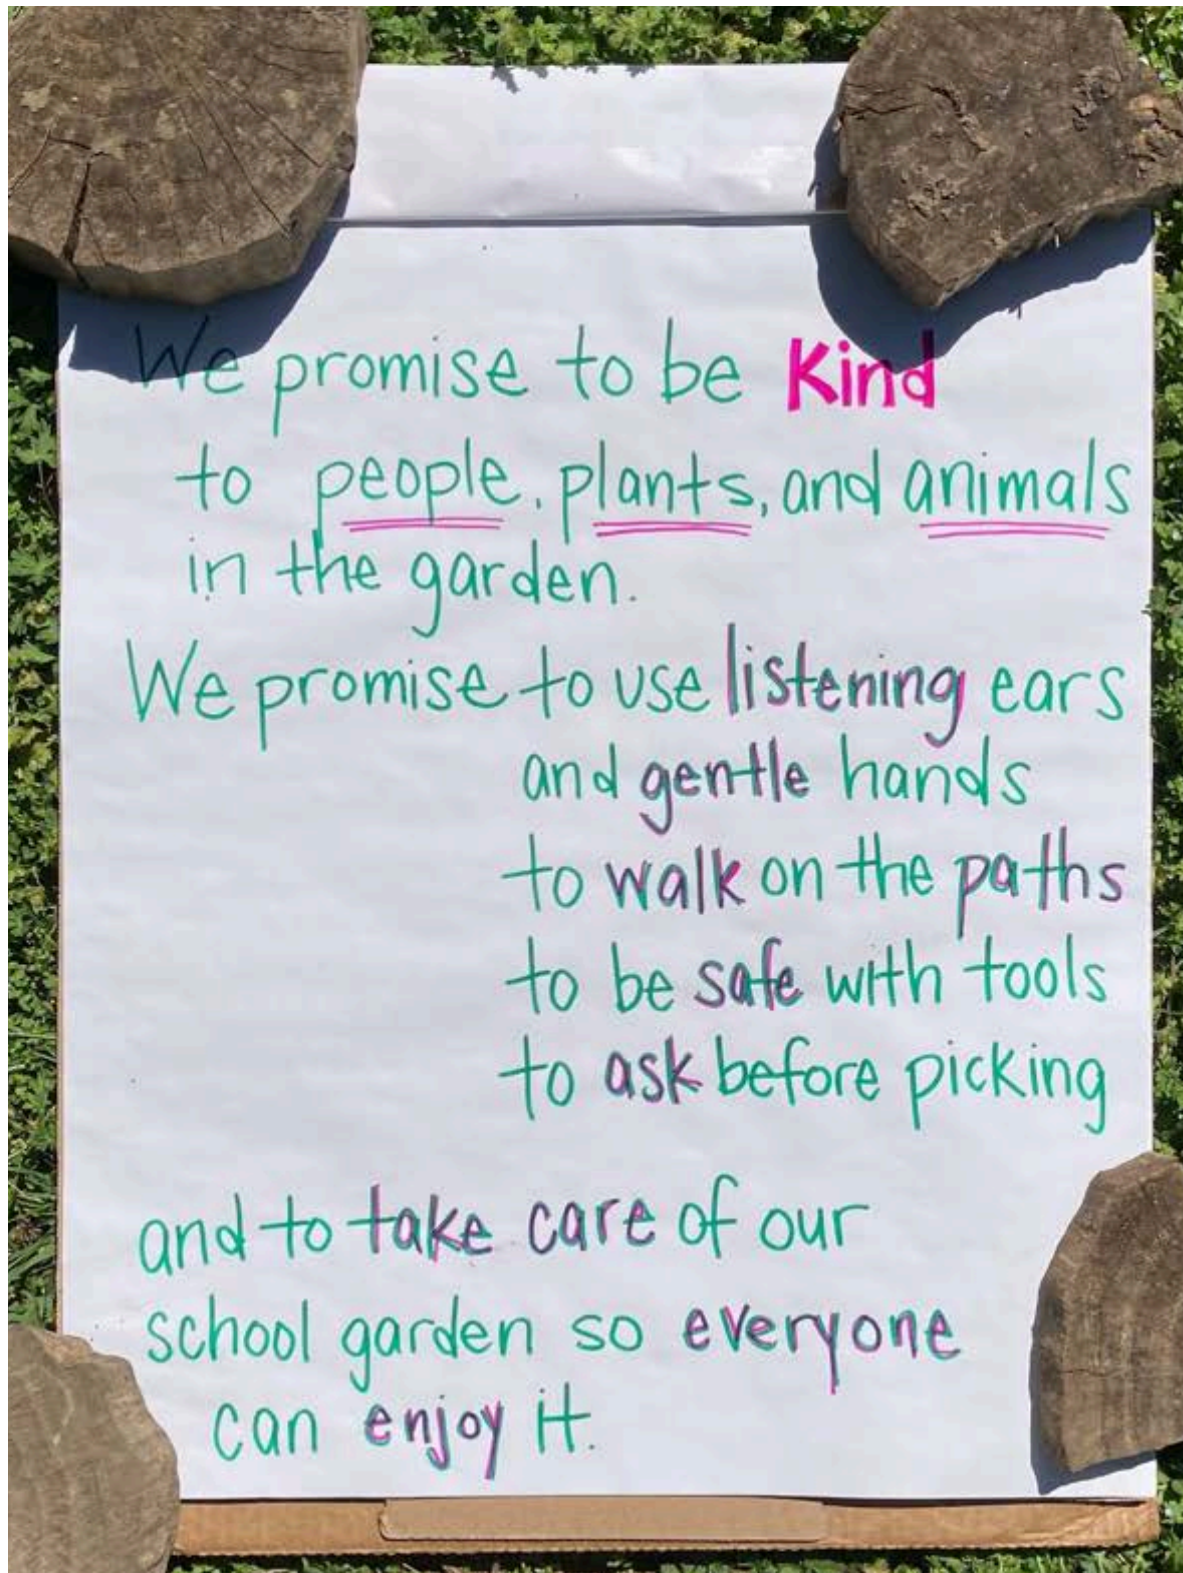 We promise to be Kind
to people, plants, and animals
in the garden.
We promise to use listening ears
and gentle hands
to walk on the paths
to be safe with tools
to ask before picking
and to take care of our
school garden so everyone
can enjoy it.